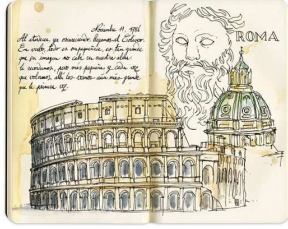 Noviembre 11, 1786
Al atardecer, ya oscureciendo, llegamos al Coliseo.
todo es es tan grande
que su imagen no cabe en nuestra alma
pero más pequeña y cada vez
que volvemos, allí aún más grande
que la primera vez.
ROMA